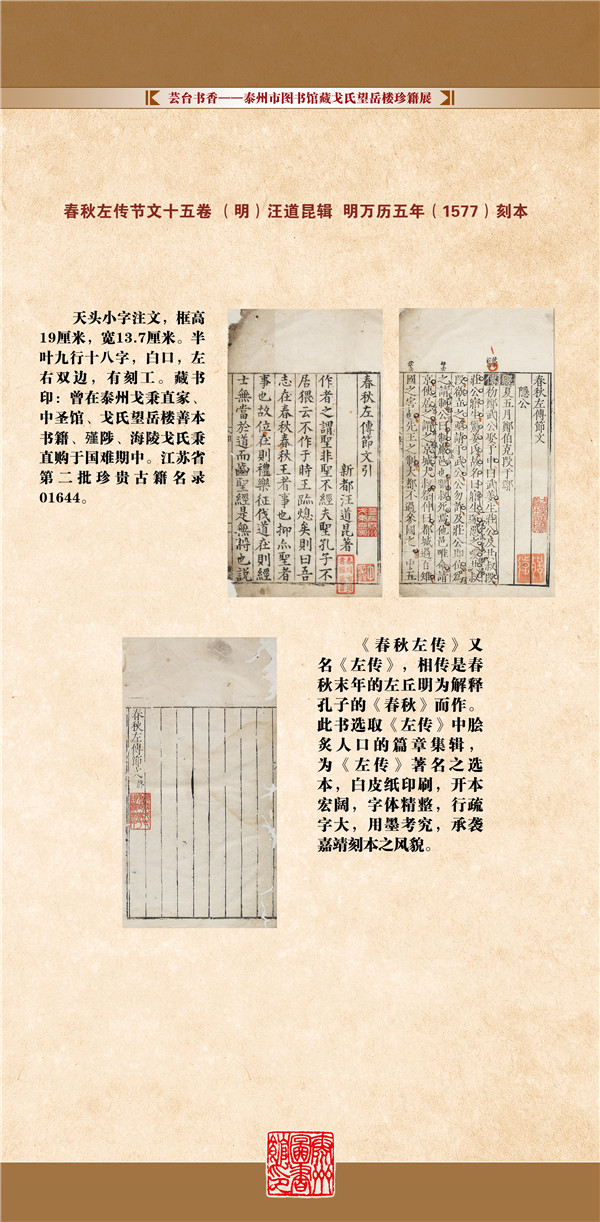 芸台书香——泰州市图书馆藏戈氏望岳楼珍籍展
春秋左传节文十五卷（明）汪道昆辑 明万历五年（1577）刻本
天头小字注文，框高
19厘米，宽13.7厘米。半
叶九行十八字，白口，左
右双边，有刻工。藏书
印：曾在泰州戈秉直家、
中圣馆、戈氏望岳楼善本
书籍、殣陟、海陵戈氏秉
直购于国难期中。江苏省
第二批珍贵古籍名录
01644。
春秋左傳節文引
新都汪道昆著
作者之謂聖非聖不經夫聖孔子不
居猥云不作于時王跡熄矣則曰吾
志在春秋春秋王者事也抑亦聖者
事也故位在則禮樂征伐道在則經
士無當於道而齒聖經是無將也説
春秋左傳節文
隱公
夏五月鄭伯克段于鄢
初鄭武公娶于申曰武姜生莊公及共叔段
春秋左傳節文終
《春秋左传》又
名《左传》，相传是春
秋末年的左丘明为解释
孔子的《春秋》而作。
此书选取《左传》中脍
炙人口的篇章集辑，
为《左传》著名之选
本，白皮纸印刷，开本
宏阔，字体精整，行疏
字大，用墨考究，承袭
嘉靖刻本之风貌。
泰州
圖書
館印